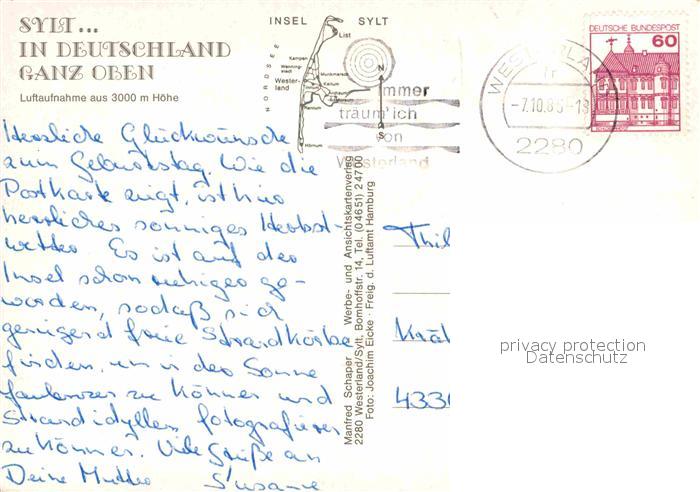 SYLT...
IN DEUTSCHLAND
GANZ OBEN
Luftaufnahme aus 3000 m Höhe
INSEL SYLT
NORDSEE
List
Kampen
Wenning-
stedt
Wester-
land
Munkmarsch
Keitum
Rantum
Hörnum
N
S
Immer
träum' ich
von
Westerland
WESTERLAND
-7.10.86-18
2280
DEUTSCHE BUNDESPOST
60
Herzliche Glückwünsche
zum Geburtstag. Wie die
Postkarte zeigt, ist hier
herrliches sonniges Herbst-
wetter. Es ist auf der
Insel schon ruhiger ge-
worden, sodaß sich
genügend freie Strandkörbe
finden, um in der Sonne
faulenzen zu können und
Strandidyllen fotografieren
zu können. Viele Grüße an
Deine Mutter Susanne
Manfred Schaper Werbe- und Ansichtskartenverlag
2280 Westerland/Sylt, Bomhoffstr. 14, Tel. (04651) 24700
Foto: Joachim Eicke · Freig. d. Luftamt Hamburg
Thil
Krät
4330
privacy protection
Datenschutz